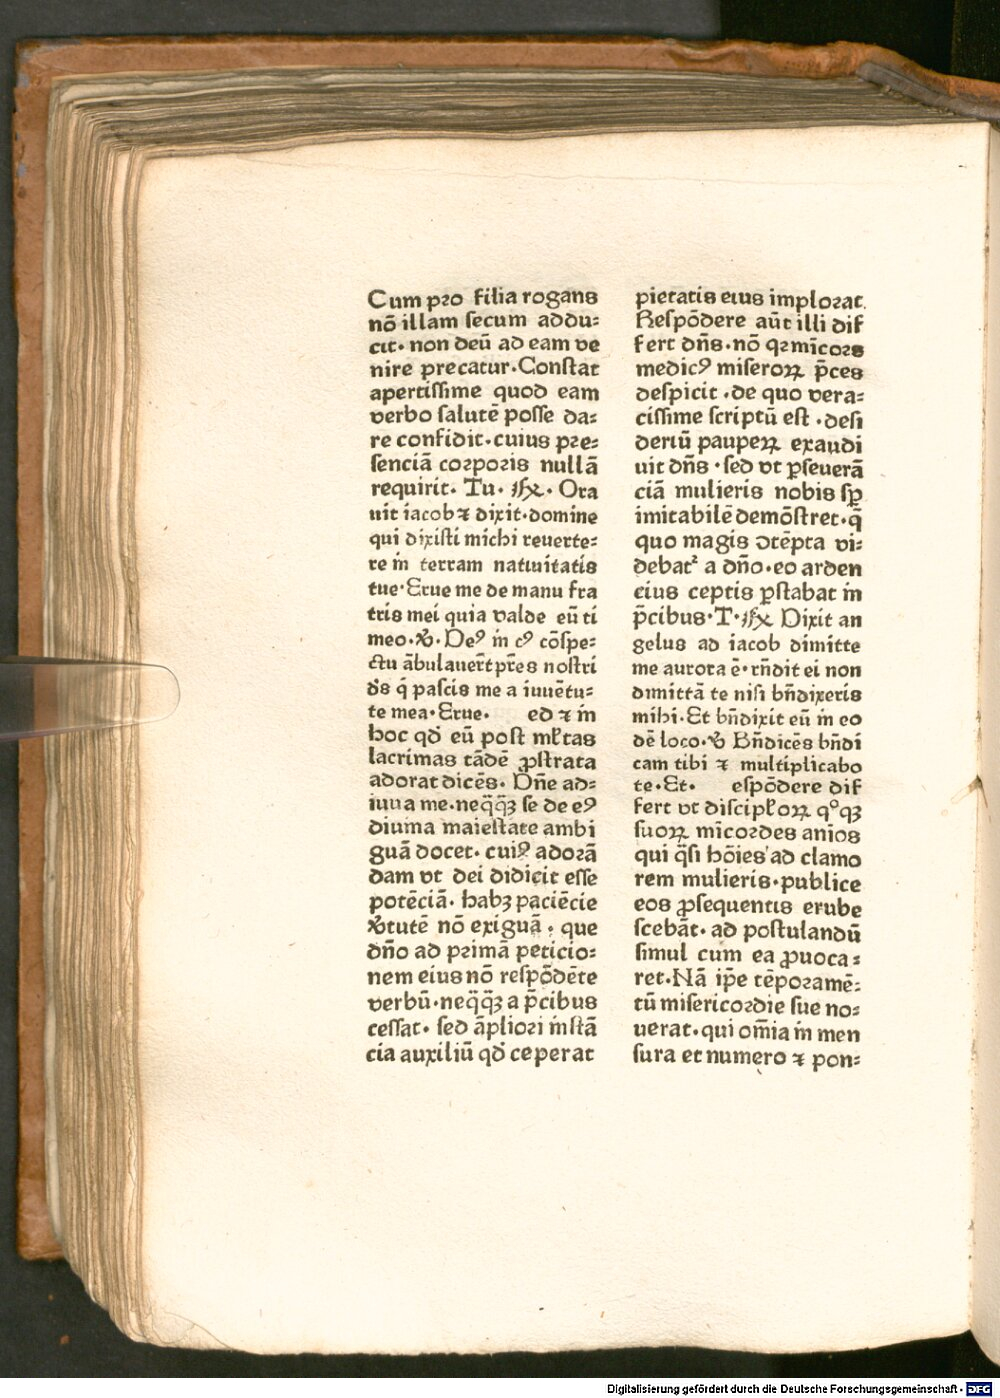 Cum pro filia rogans
nō illam secum addu⸗
cit· non deū ad eam ve
nire precatur·Constat
apertissime quod eam
verbo salutē posse da⸗
re confidit·cuius pre⸗
senciā corporis nullā
requirit· Tu· ℟· Ora
uit iacob ⁊ dixit·domine
qui dixisti michi reuerte⸗
re in terram natiuitatis
tue·Erue me de manu fra
tris mei quia valde eū ti
meo·℣·Deꝰ in cꝰ cōspe⸗
ctu ābulauer̄t pr̄es nostri
ds̄ q̇ pascis me a iuuētu⸗
te mea·Erue· ed ⁊ in
hoc qd̄ eū post ml̄tas
lacrimas tādē ꝓstrata
adorat dicēs· Dn̄e ad⸗
iuua me·neq̄q̄ꝫ se de eꝰ
diuina maiestate ambi
guā docet· cuiꝰ adorā
dam vt dei didicit esse
potēciā· habꝫ paciēcie
℣tutē nō exiguā· que
dn̄o ad primā peticio⸗
nem eius nō respōdēte
verbū·neq̄q̄ꝫ a p̄cibus
cessat· sed āpliori instā
cia auxiliū qd̄ ceperat
pietatis eius implorat.
Respōdere aūt illi dif
fert dn̄s·nō qꝛ mīcors
medicꝰ miseroꝝ p̄ces
despicit ·de quo vera⸗
cissime scriptū est ·desi
deriū paupeꝝ exaudi
uit dn̄s ·sed vt ꝑseuerā
ciā mulieris nobis sꝑ
imitabilē demōstret·q̄
quo magis ↄtēpta vi⸗
debatᷣ a dn̄o·eo arden
cius ceptis ꝑstabat in
p̄cibus·T·℟ Dixit an
gelus ad iacob dimitte
me aurora ē·rn̄dit ei non
dimittā te nisi bn̄dixeris
mihi·Et bn̄dixit eū in eo
dē loco·℣ Bn̄dicēs bn̄di
cam tibi ⁊ multiplicabo
te·Et· espōdere dif
fert vt discipl̄oꝝ qͦqꝫ
suoꝝ mīcordes anīos
qui q̄si hōies ad clamo
rem mulieris·publice
eos ꝓsequentis erube
scebāt· ad postulandū
simul cum ea ꝓuoca⸗
ret·Nā ip̄e tēporamē⸗
tū misericordie sue no⸗
uerat·qui om̄ia in men
sura et numero ⁊ pon⸗
Digitalisierung gefördert durch die Deutsche Forschungsgemeinschaft - DFG